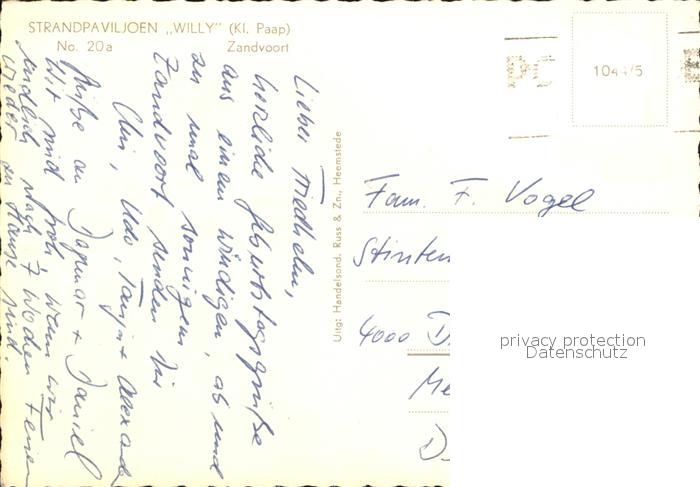 STRANDPAVILJOEN „WILLY" (Kl. Paap)
No. 20a Zandvoort
Lieber Friedhelm,
herzliche Geburtstagsgrüße
aus einem windigen, ab und
zu mal sonnigen
Zandvoort senden Dir
Udo, Tanja +
Grüße an Dagmar + Daniel
Wir sind froh, wenn wir
endlich nach 7 Wochen Ferien
wieder zu Hause sind.
Uitg: Handelsond. Russ & Zn., Heemstede
1044/5
Fam. F. Vogel
Stinten
4000 D
Me
D
privacy protection
Datenschutz